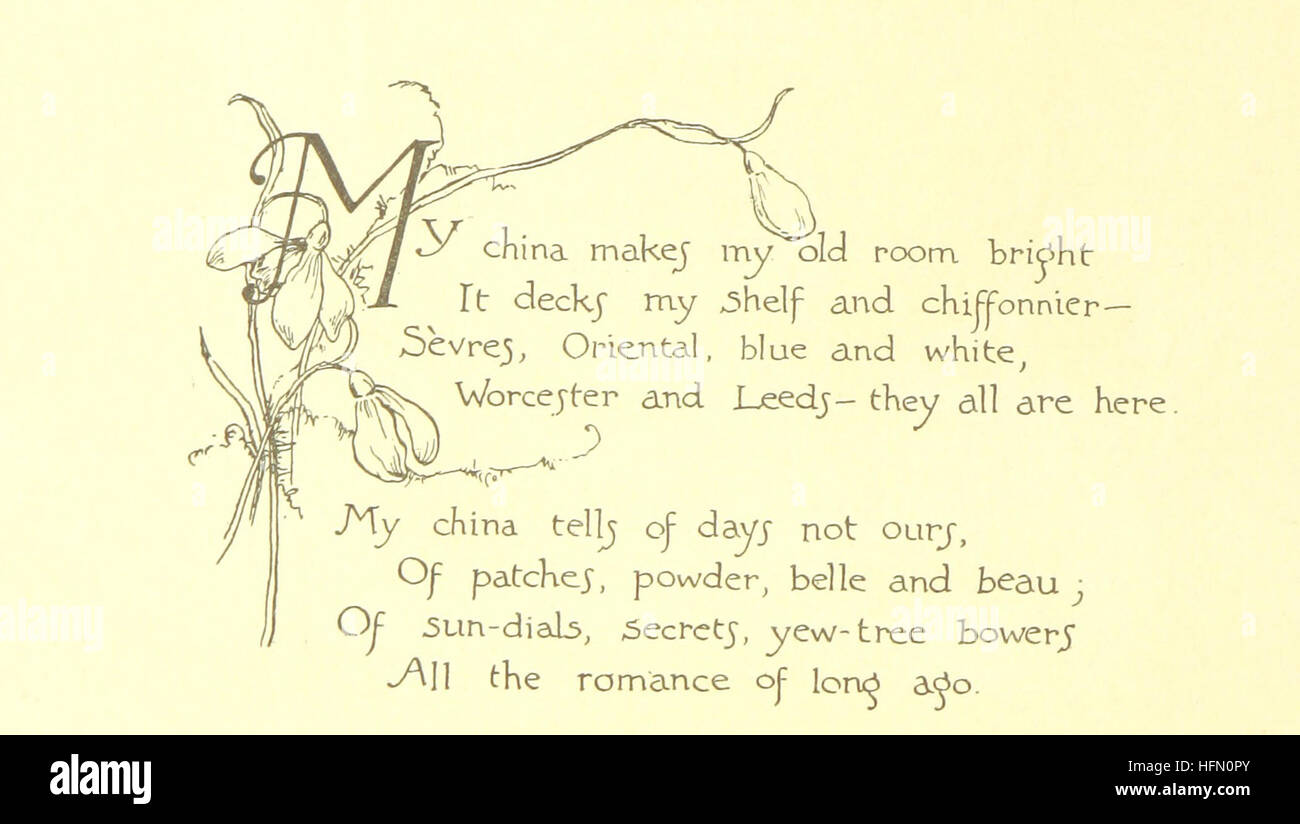 My china makes my old room bright
It decks my shelf and chiffonnier—
Sèvres, Oriental, blue and white,
Worcester and Leeds—they all are here.
My china tells of days not ours,
Of patches, powder, belle and beau;
Of sun-dials, secrets, yew-tree bowers
All the romance of long ago.
alamy
Image ID: HFN0PY
www.alamy.com